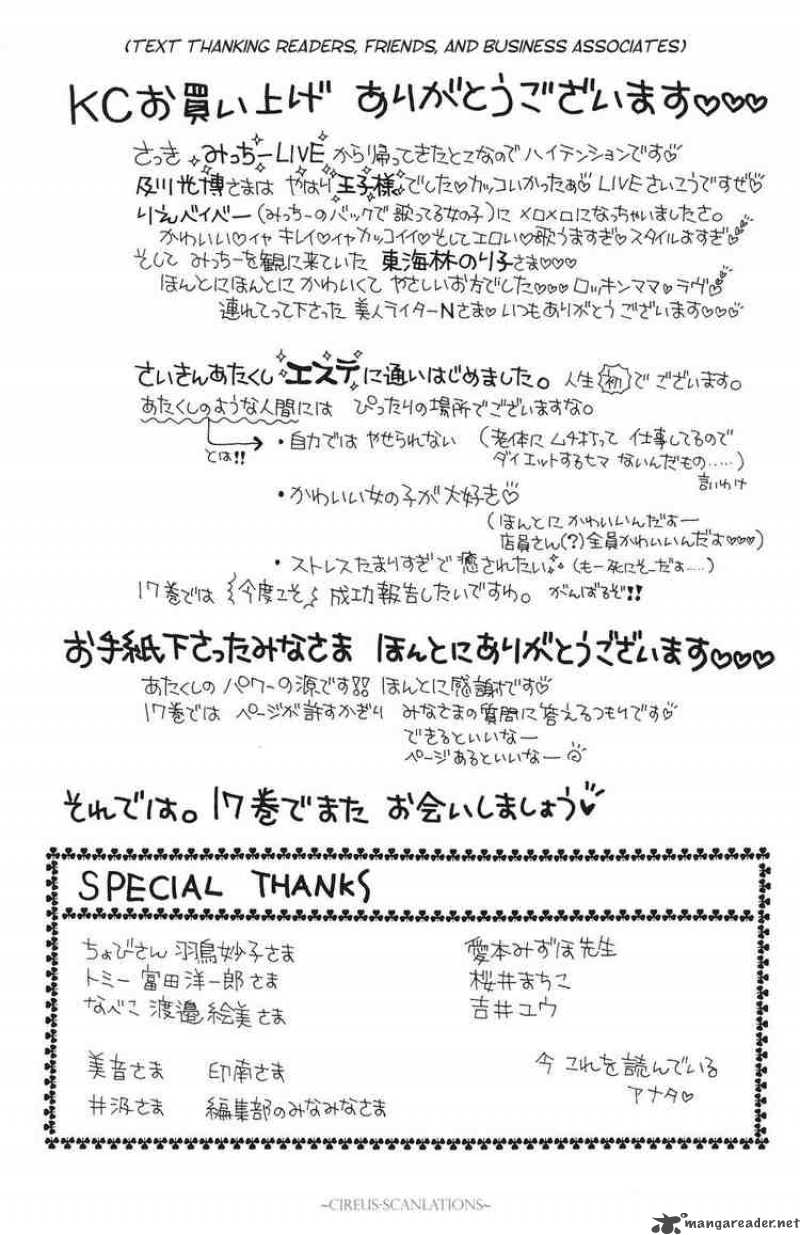 (TEXT THANKING READERS, FRIENDS, AND BUSINESS ASSOCIATES)
KCお買い上げ ありがとうございます♡♡♡
さっき みっちーLIVE から帰ってきたとこなので ハイテンションです♡
及川光博さまは やはり王子様でした♡カッコいかったぁ♡ LIVEさいこうですぜ♡
りえベイベー(みっちーのバックで歌ってる女の子)に メロメロになっちゃいましたさ。
かわいい♡イヤ キレイ♡イヤカッコイイ♡そしてエロい♡歌うますぎ♡スタイルよすぎ♡
そして みっちーを観に来ていた 東海林のり子さま♡♡♡
ほんとにほんとに かわいくて やさしいお方でした♡♡♡ ロッキンママ♡ラヴ♡
連れてって下さった 美人ライターNさま♡いつもありがとう ございます♡♡♡
さいきんあたくし エステに通いはじめました。 人生初でございます。
あたくしのような人間には ぴったりの場所でございますな。
とは!!
・自力では やせられない (老体に ムチ打って 仕事してるので
ダイエットするヒマ ないんだもの……)
言いわけ
・かわいい女の子が大好き♡
(ほんとに かわいいんだよー
店員さん(?)全員かわいいんだよ♡♡♡)
・ストレスたまりすぎで癒されたい (もー死にそーだよ……)
17巻では 今度こそ 成功報告したいですわ。 がんばるぞ!!
お手紙下さったみなさま ほんとにありがとうございます♡♡♡
あたくしの パワーの源です ほんとに感謝です♡
17巻では ページが許すかぎり みなさまの質問に答えるつもりです♡
できるといいなー
ページあるといいなー
それでは。17巻でまた お会いしましょう♡
SPECIAL THANKS
ちょびさん 羽鳥妙子さま
トミー 富田洋一郎さま
なべこ 渡邉絵美さま
美音さま 印南さま
井汲さま 編集部のみなみなさま
愛本みずほ先生
桜井まちこ
吉井ユウ
今 これを読んでいる
アナタ♡
~CIREUS-SCANLATIONS~
mangareader.net